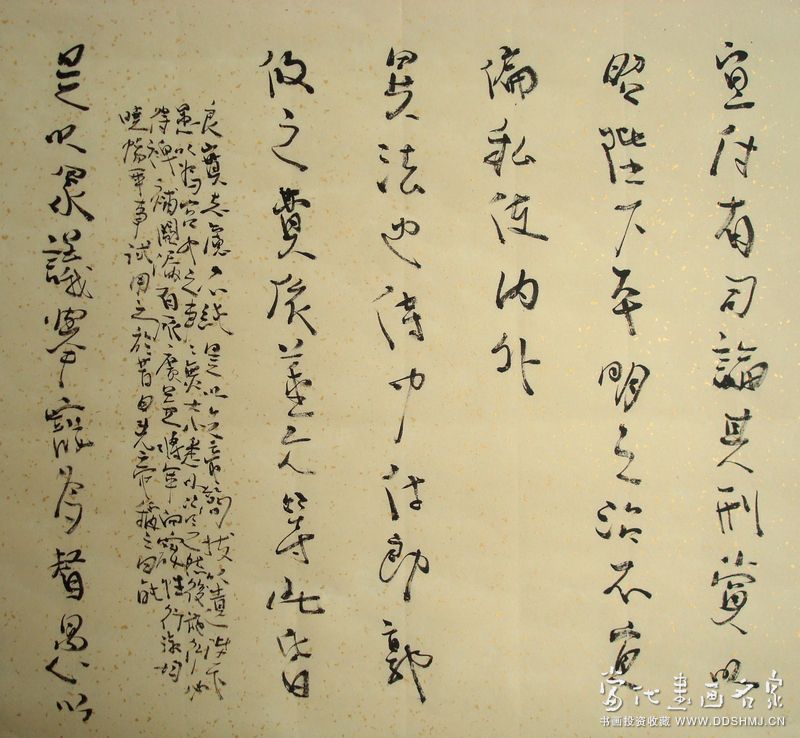 宜付有司論其刑賞以
昭陛下平明之治不宜
偏私使内外
異法也侍中侍郎郭
攸之費禕董允等此皆
良實志慮忠純是以先帝簡拔以遺陛下
愚以為宮中之事々無大小悉以咨之然後施行必
得裨補闕漏有所廣益將軍向寵性行淑均
曉暢軍事試用之於昔日先帝稱之曰能
是以眾議舉寵為督愚以
當代書画名家
书画投资收藏 WWW.DDSHMJ.CN